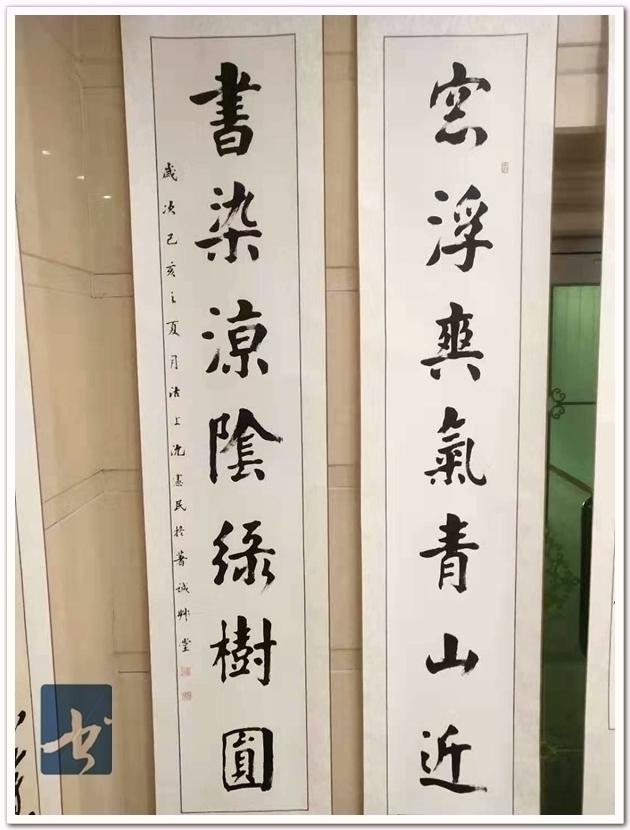 窓浮爽氣青山近
書染涼陰綠樹圓
歲次己亥之夏月沽上沈憲民於誠艸堂
书